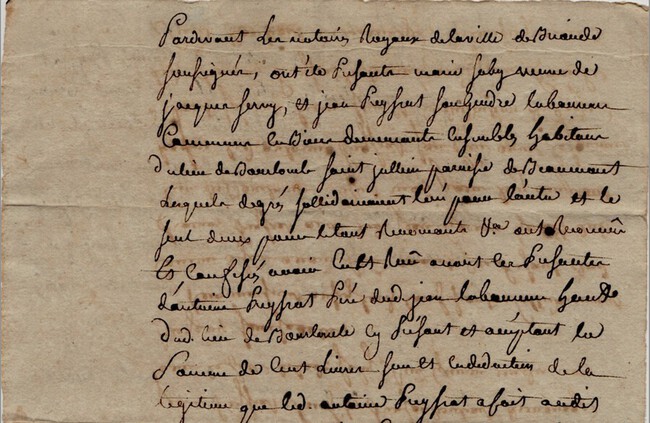 Pardevant les notaires Royaux de la ville de Brioude
soussignés, ont été presants marie saby veuve de
jacques ferry, et jean Peyssat son gendre laboureur
Commune en Biens demeurants ensembles habitans
du lieu de Bourleule saint jullien paroisse de Beaumont
Lesquels de grés sollidairement l'un pour l'autre et le
seul deux pour le tout Renoncants &a ont Reconnu
Et Confessé avoir Cu et Reçu avant les Presantes
d'antoine Peyssat Peré dud. jean laboureur
dud. lieu de Bourleule cy Present et acceptant la
Somme de Cent Livres sur et en deduction de la
legitime que led. antoine Peyssat a fait audit